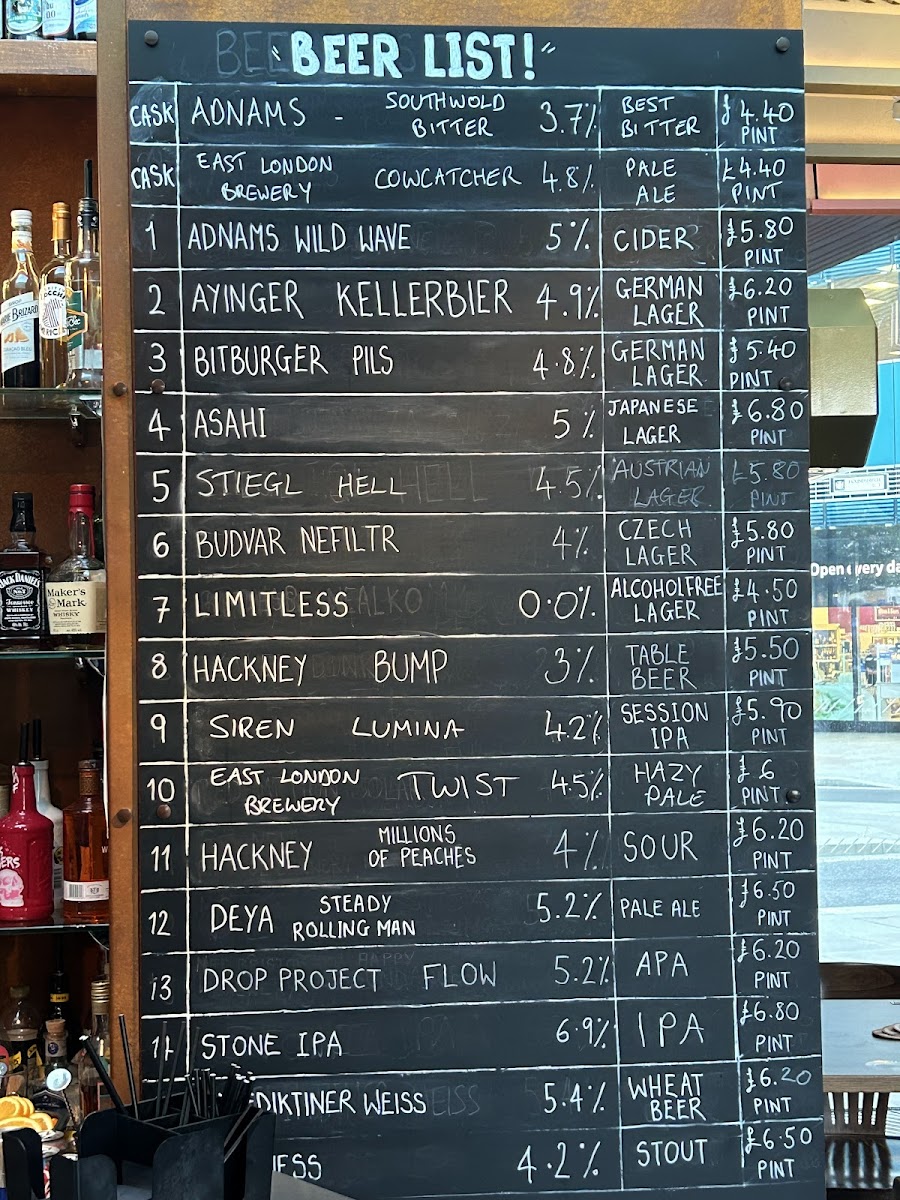 "BEER LIST!"
CASK ADNAMS - SOUTHWOLD BITTER 3.7% BEST BITTER £4.40 PINT
CASK EAST LONDON BREWERY COWCATCHER 4.8% PALE ALE £4.40 PINT
1 ADNAMS WILD WAVE 5% CIDER £5.80 PINT
2 AYINGER KELLERBIER 4.9% GERMAN LAGER £6.20 PINT
3 BITBURGER PILS 4.8% GERMAN LAGER £5.40 PINT
4 ASAHI 5% JAPANESE LAGER £6.80 PINT
5 STIEGL HELL 4.5% AUSTRIAN LAGER £5.80 PINT
6 BUDVAR NEFILTR 4% CZECH LAGER £5.80 PINT
7 LIMITLESS 0.0% ALCOHOLFREE LAGER £4.50 PINT
8 HACKNEY BUMP 3% TABLE BEER £5.50 PINT
9 SIREN LUMINA 4.2% SESSION IPA £5.90 PINT
10 EAST LONDON BREWERY TWIST 4.5% HAZY PALE £6 PINT
11 HACKNEY MILLIONS OF PEACHES 4% SOUR £6.20 PINT
12 DEYA STEADY ROLLING MAN 5.2% PALE ALE £6.50 PINT
13 DROP PROJECT FLOW 5.2% APA £6.20 PINT
STONE IPA 6.9% IPA £6.80 PINT
DIKTINER WEISS 5.4% WHEAT BEER £6.20 PINT
ESS 4.2% STOUT £6.50 PINT
JACK DANIEL'S
Tennessee
WHISKEY
Maker's
Mark
WHISKY
Open every da